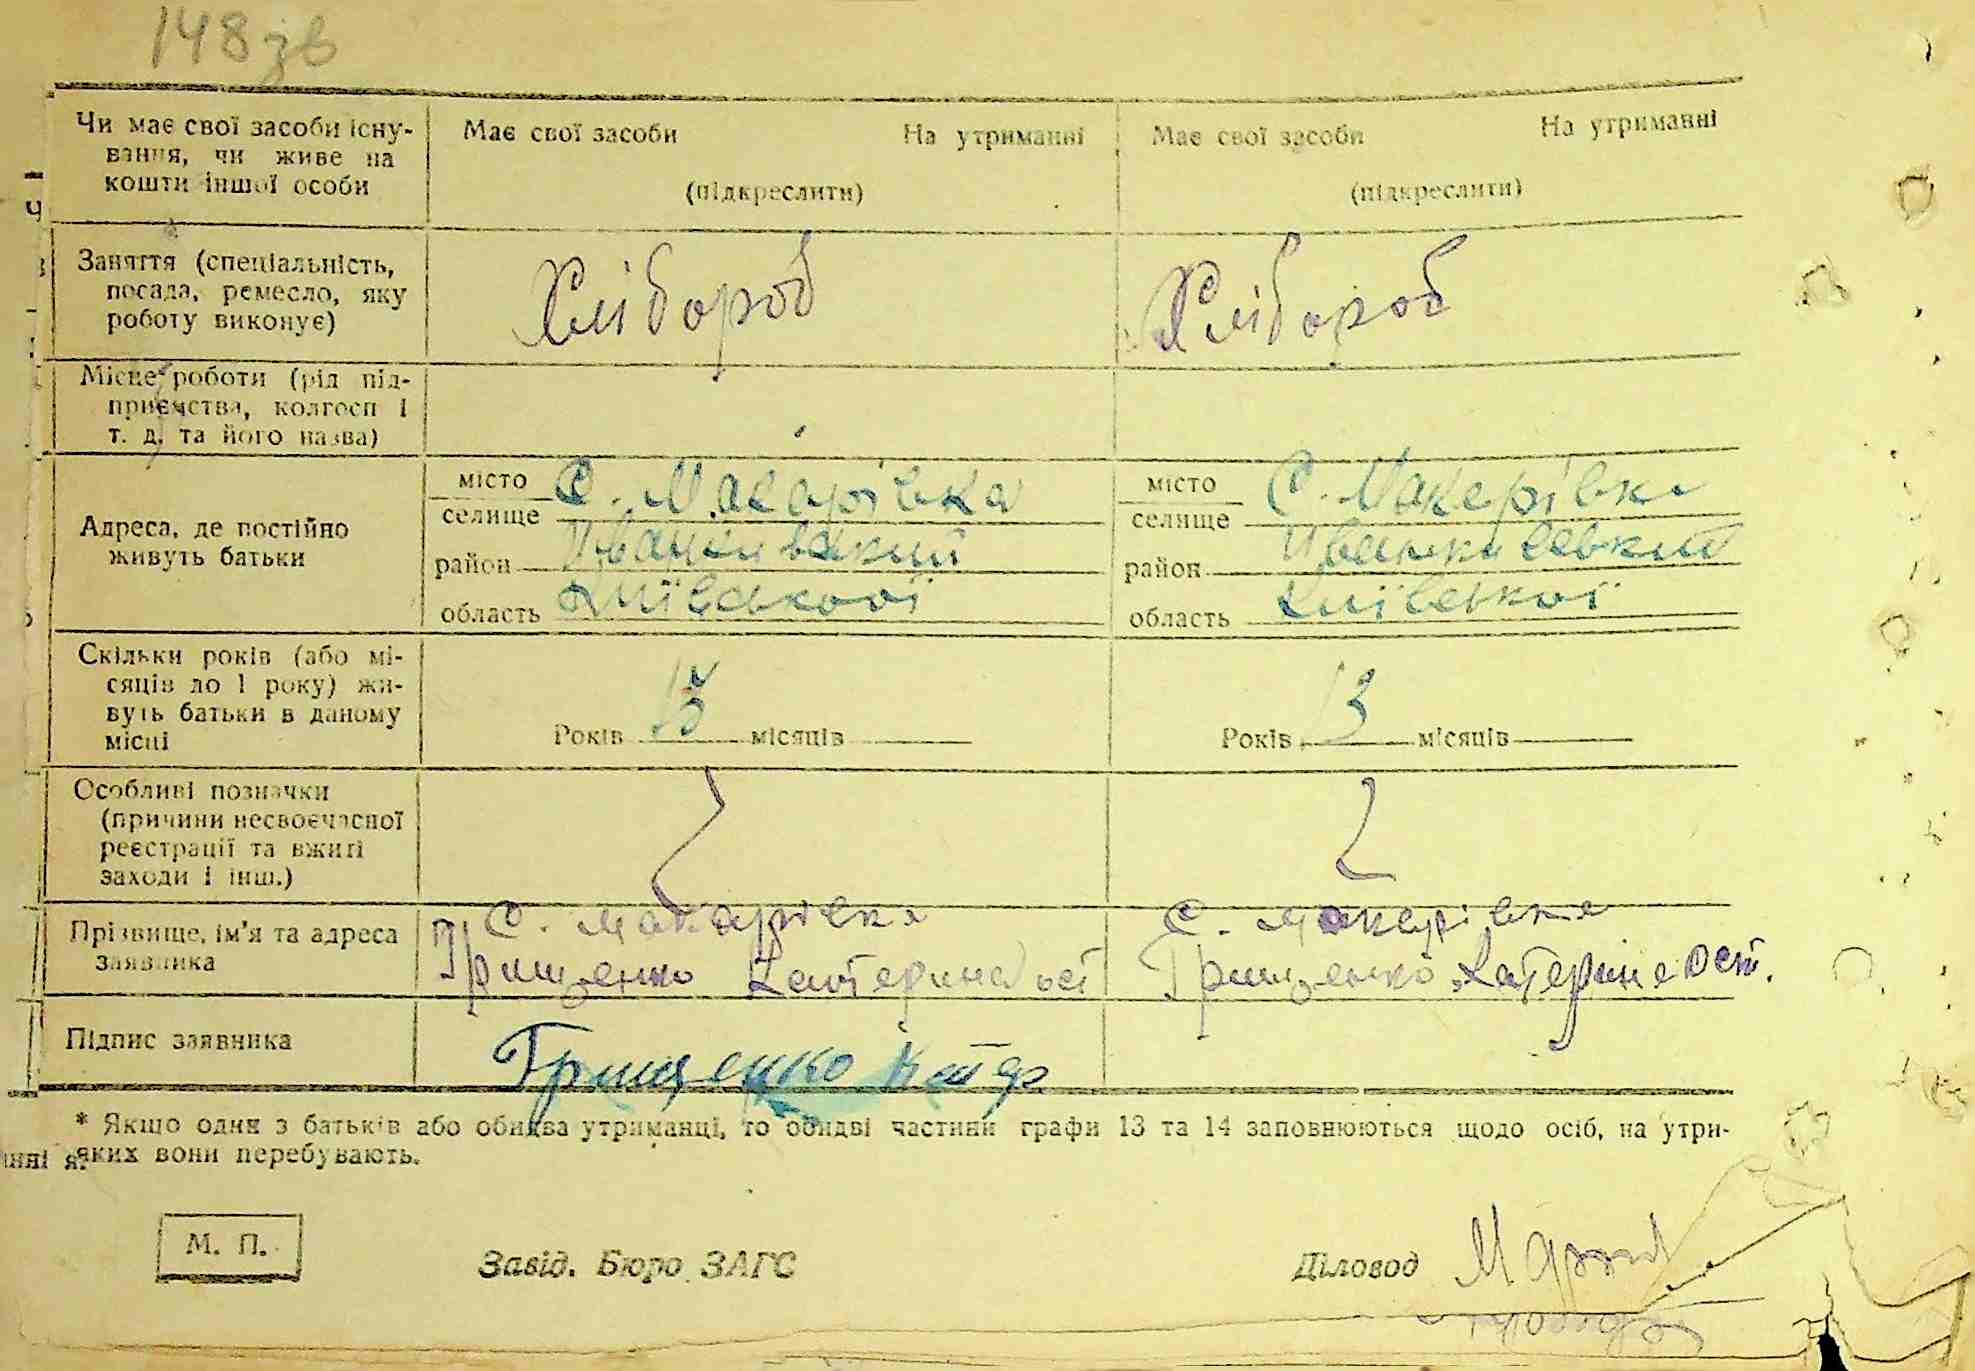 148 зв
Чи має свої засоби існу-
вання, чи живе на
кошти іншої особи
Має свої засоби На утриманні
(підкреслити)
Має свої засоби На утриманні
(підкреслити)
Заняття (спеціальність,
посада, ремесло, яку
роботу виконує)
Хлібороб
Хлібороб
Місце роботи (рід під-
приємства, колгосп і
т. д. та його назва)
Адреса, де постійно
живуть батьки
місто
селище
С. Макарівка
район Іванківський
область Київської
місто
селище
С. Макарівка
район Іванківський
область Київської
Скільки років (або мі-
сяців до 1 року) жи-
вуть батьки в даному
місці
Років місяців
Років 13 місяців
Особливі позначки
(причини несвоєчасної
реєстрації та вжиті
заходи і інш.)
Прізвище, ім'я та адреса
заявника
С. Макарівка
Грищенко Катерина Ост
С. Макарівка
Грищенко Катерина Ост.
Підпис заявника
Грищенко Катер
* Якщо один з батьків або обидва утриманці, то обидві частини графи 13 та 14 заповнюються щодо осіб, на утри-
яких вони перебувають.
М. П.
Завід. Бюро ЗАГС
Діловод